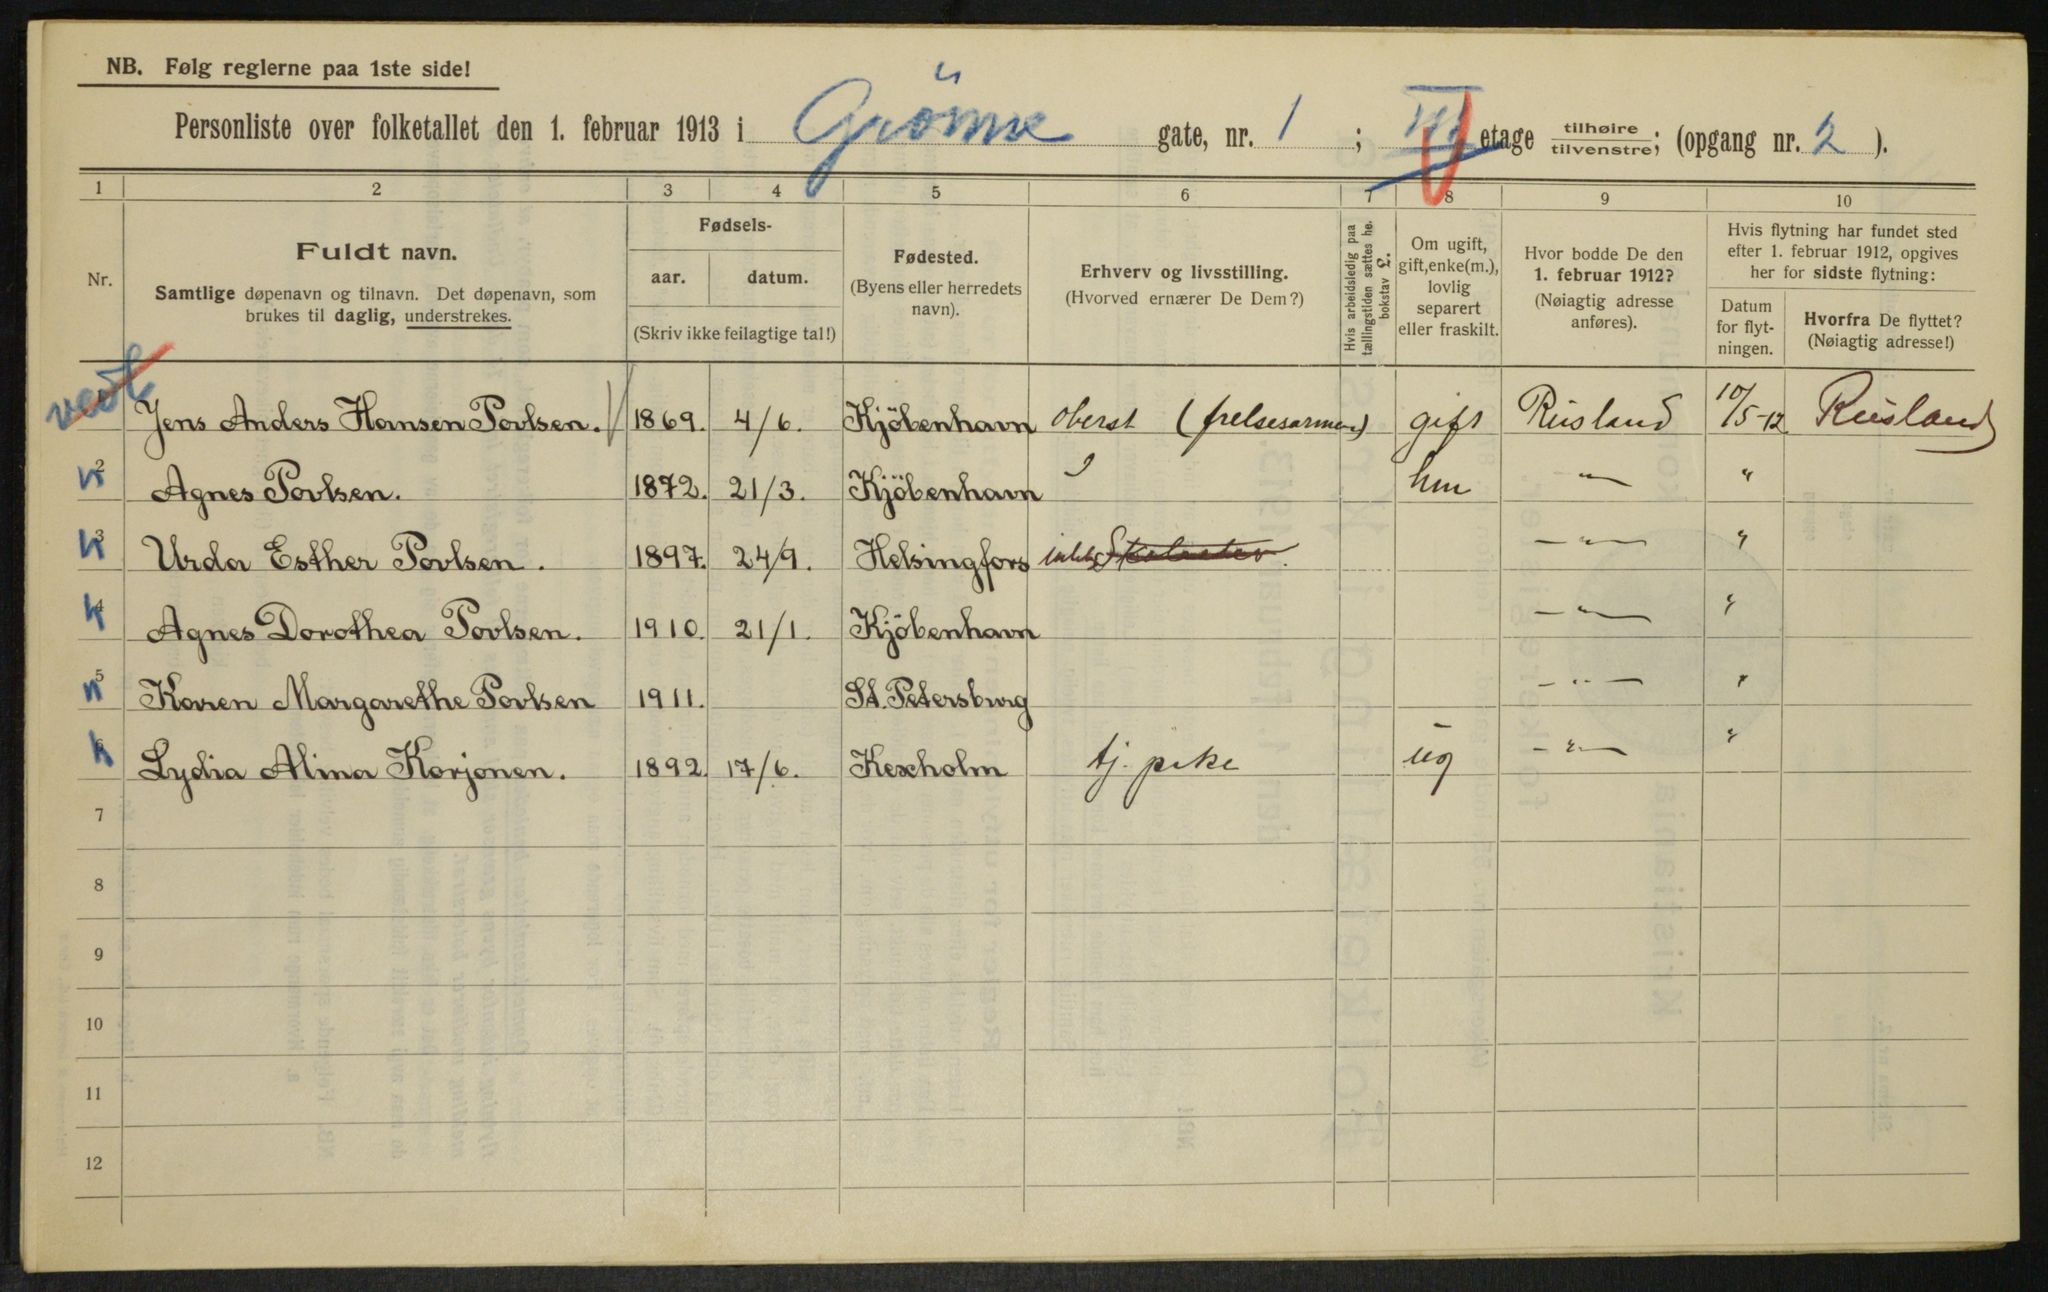 NB. Følg reglerne paa 1ste side!
Personliste over folketallet den 1. februar 1913 i Grönne gate, nr. 1 ; etage tilhøire tilvenstre; (opgang nr. 2 ).
1 2 3 4 5 6 7 8 9 10
Nr.
Fuldt navn.
Samtlige døpenavn og tilnavn. Det døpenavn, som
brukes til daglig, understrekes.
Fødsels-
aar. datum.
(Skriv ikke feilagtige tal!)
Fødested.
(Byens eller herredets
navn).
Erhverv og livsstilling.
(Hvorved ernærer De Dem?)
Hvis arbeidsledig paa
tællingstiden sættes he.
bokstav £.
Om ugift,
gift, enke(m.),
lovlig
separert
eller fraskilt.
Hvor bodde De den
1. februar 1912?
(Nøiagtig adresse
anføres).
Hvis flytning har fundet sted
efter 1. februar 1912, opgives
her for sidste flytning:
Datum
for flyt-
ningen.
Hvorfra De flyttet?
(Nøiagtig adresse!)
Jens Anders Hansen Povlsen. 1869. 4/6. Kjöbenhavn oberst (frelsesarmeen) gift Rusland 10/5-12 Rusland
2 k Agnes Povlsen. 1872. 21/3. Kjöbenhavn -"- "
3 k Urda Esther Povlsen. 1897. 24/9. Helsingfors -"- "
4 k Agnes Dorothea Povlsen. 1910. 21/1. Kjöbenhavn -"- "
5 k Karen Margarethe Povlsen 1911. St. Petersburg -"- "
6 k Lydia Alina Korjonen. 1892. 17/6. Kexholm tj. pike ug -"- "
7
8
9
10
11
12